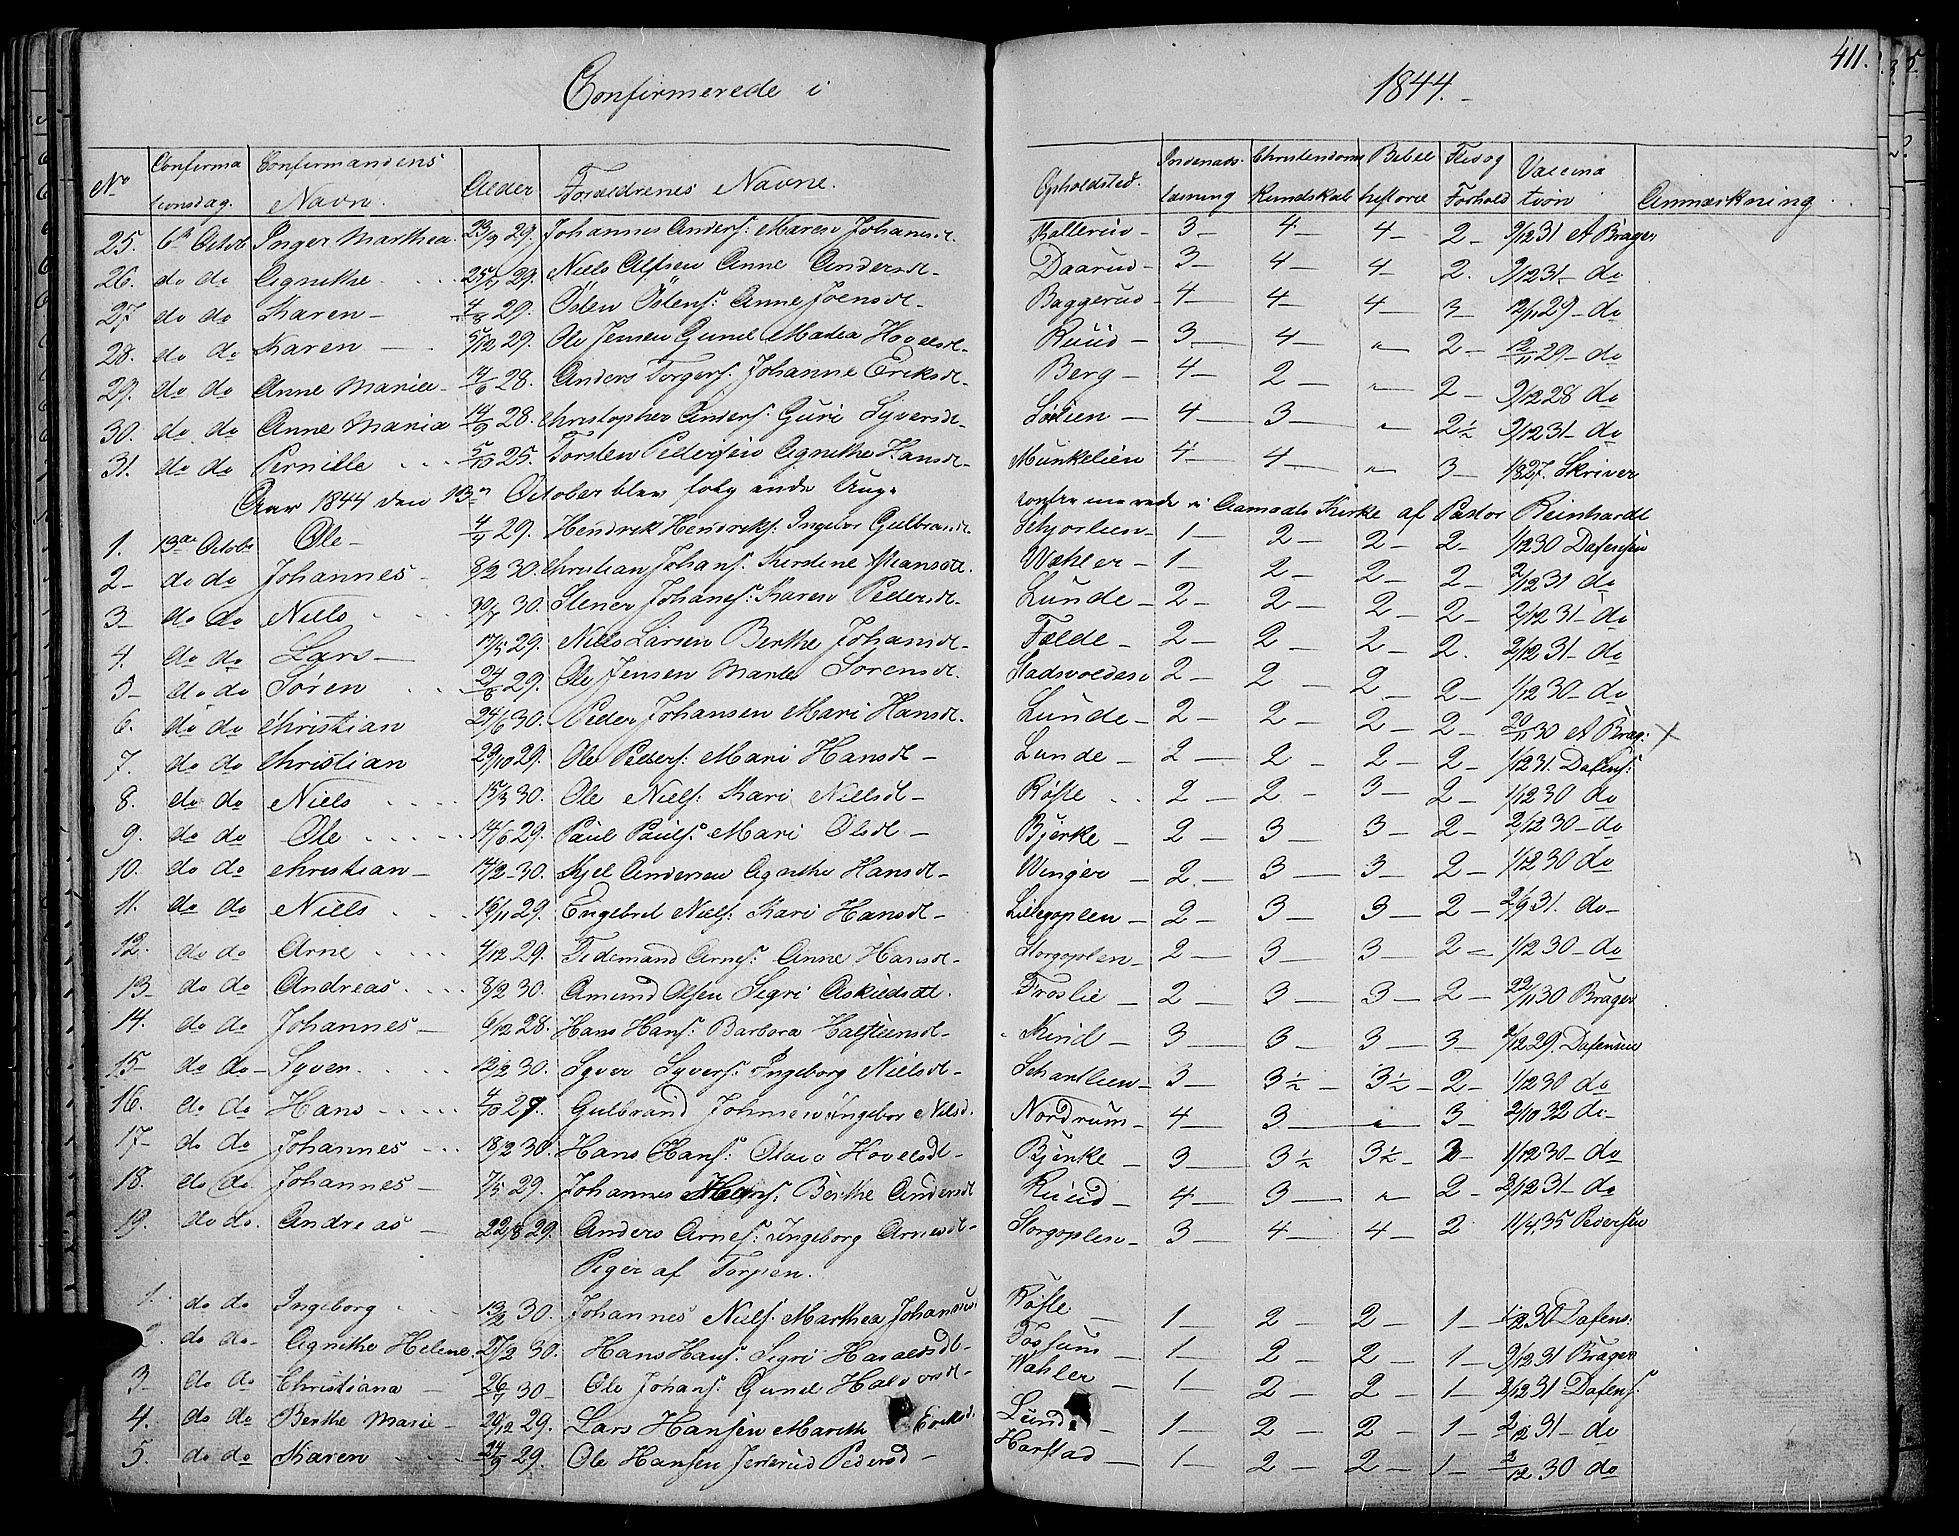 Confirmerede i 1844.
411.
No Confirmationsdag. Confirmandens Navn. Alder Forældrenes Navne. Opholdsted. Indenadslæsning Christendoms Kundskab Bibelhistorie Flid og Forhold Vaccination Anmærkning
25. 6te Octob Inger Marthea. 29. Johannes Anders: Maren Johansd. Kallerud 3 4 4 2 9/12 31 A Brager
26. do do Agnethe 29. Niels Olsen Anne Andersd Daarud 3 4 4 2. 9/12 31 do
27 do do Karen 4/8 29. Østen Østens: Anne Joensd Baggerud 4 4 4 3 2/11 29 do
28. do do Karen 5/12 29. Ole Jensen Gunil Madea Hovelsd Ruud 3 4 " 2 12/11 29 do
29. do do Anne Marie 28. Anders Torgers: Johanne Eriksd Berg 4 2 " 2 9/12 28 do
30. do do Anne Maria 14/9 28. Christopher Anders: Guri Syversd Sølien 4 3 " 2½ 9/12 31 do
31. do do Pernille 5/10 25. Torsten Pedersen Agnethe Hansd Munkelien 4 4 " 3 27. Skriver
Aar 1844 den 13de October blev følgende Unge confirmerede i Aamodts Kirke af Pastor Reinhardt
1. 13de October Ole 29. Hendrik Hendriks: Ingebor Gulbransd Schjorlien 1 2 2 2 1/12 30 Dafensen
2 do do Johannes 8/2 30. Christian Johans: Kirstine Hansdt. Wæhler 1 2 2 2 2/12 31 do
3 do do Niels 30. Stener Johans: Karen Pedersd Lunde 2 2 2 2 2/12 31 do
4. do do Lars 17/5 29. Niels Larsen Berthe Johansd Fælde 2 2 2 2. 2/12 31 do
5 do do Søren 24/8 29. Ole Jensen Marte Sørensd. Stadsvolden 2 2 2 2 1/12 30 do
6. do do Christian 24/6 30. Peder Johansen Mari Hansd. Lunde 2 2 2 2 30 A Brag: X
7. do do Christian 29/10 29. Ole Peders: Mari Hansd Lunde 2 2 2 2 1/12 31. Dafens:
8. do do Niels 15/3 30. Ole Niels: Kari Nielsd Røste 2 2 3 2 1/12 30 do
9. do do Ole 14/6 29. Paul Pauls: Mari Olsd Bjerke 2 3 3 2 2/12 30 do
10. do do Christian 14/2 30. Kjel Andersen Agnethe Hansd Winger 2 3 3 2 1/12 30 do
11. do do Niels 16/11 29. Engebret Niels: Kari Hansd Lillegoplen 2 3 3 2 2/9 31. do
12. do do Arne 4/12 29. Tidemand Arnes: Anne Hansd Storgoplen 2 3 3 2 1/12 30 do
13 do do Andreas 8/2 30. Amund Olsen Sigri Askildsd. Froslie 2 3 3 2 22/11 30 Brager
14. do do Johannes 6/12 28. Hans Hans: Barbara Halsteinsd Kind 3 3 3 3 1/12 29. Dafensen
15 do do Syver 12/2 30. Syver Syvers: Ingeborg Nielsd Schartlien 3 3½ 3½ 2 1/12 30 do
16. do do Hans 4/10 29. Gulbrand Johnsen Ingebor Nilsd. Nordrum 4 3 " 3 2/10 32 do
17 do do Johannes 18/2 30. Hans Hans: Olava Hovelsd Bjerke 3 3½ 3½ 2 1/12 30 do
18. do do Johannes 7/5 29. Johannes Hans: Berthe Andersd Ruud 4 3 " 2 2/12 31 do
19. do do. Andreas 22/8 29. Anders Arnes: Ingeborg Arnesd Storgoplen 3 4 4 2 11/4 35 Pedersen
Piger af Torpen.
1. do do Ingeborg 13/2 30. Johannes Niels: Marthea Johansen Røste 1 2 2 1 30 Dafens:
2 do do Agnethe Helene. 27/2 30. Hans Hans: Sigri Haraldsd Fossum 1 2 2 1 9/12 31 Brager
3 do do Christiana 30 Ole Johans: Gunil Halvorsd Wahler 1 2 2 1 2/12 31 Dafens:
4. do do Berthe Marie 20/12 29. Lars Hansen Marith Eriksd. Lunde 1 2 2 1 2/12 31 do
5. do do Karen 24/9 29. Ole Hansen Pedersd Harstad 1 2 2 1 2/12 30 do